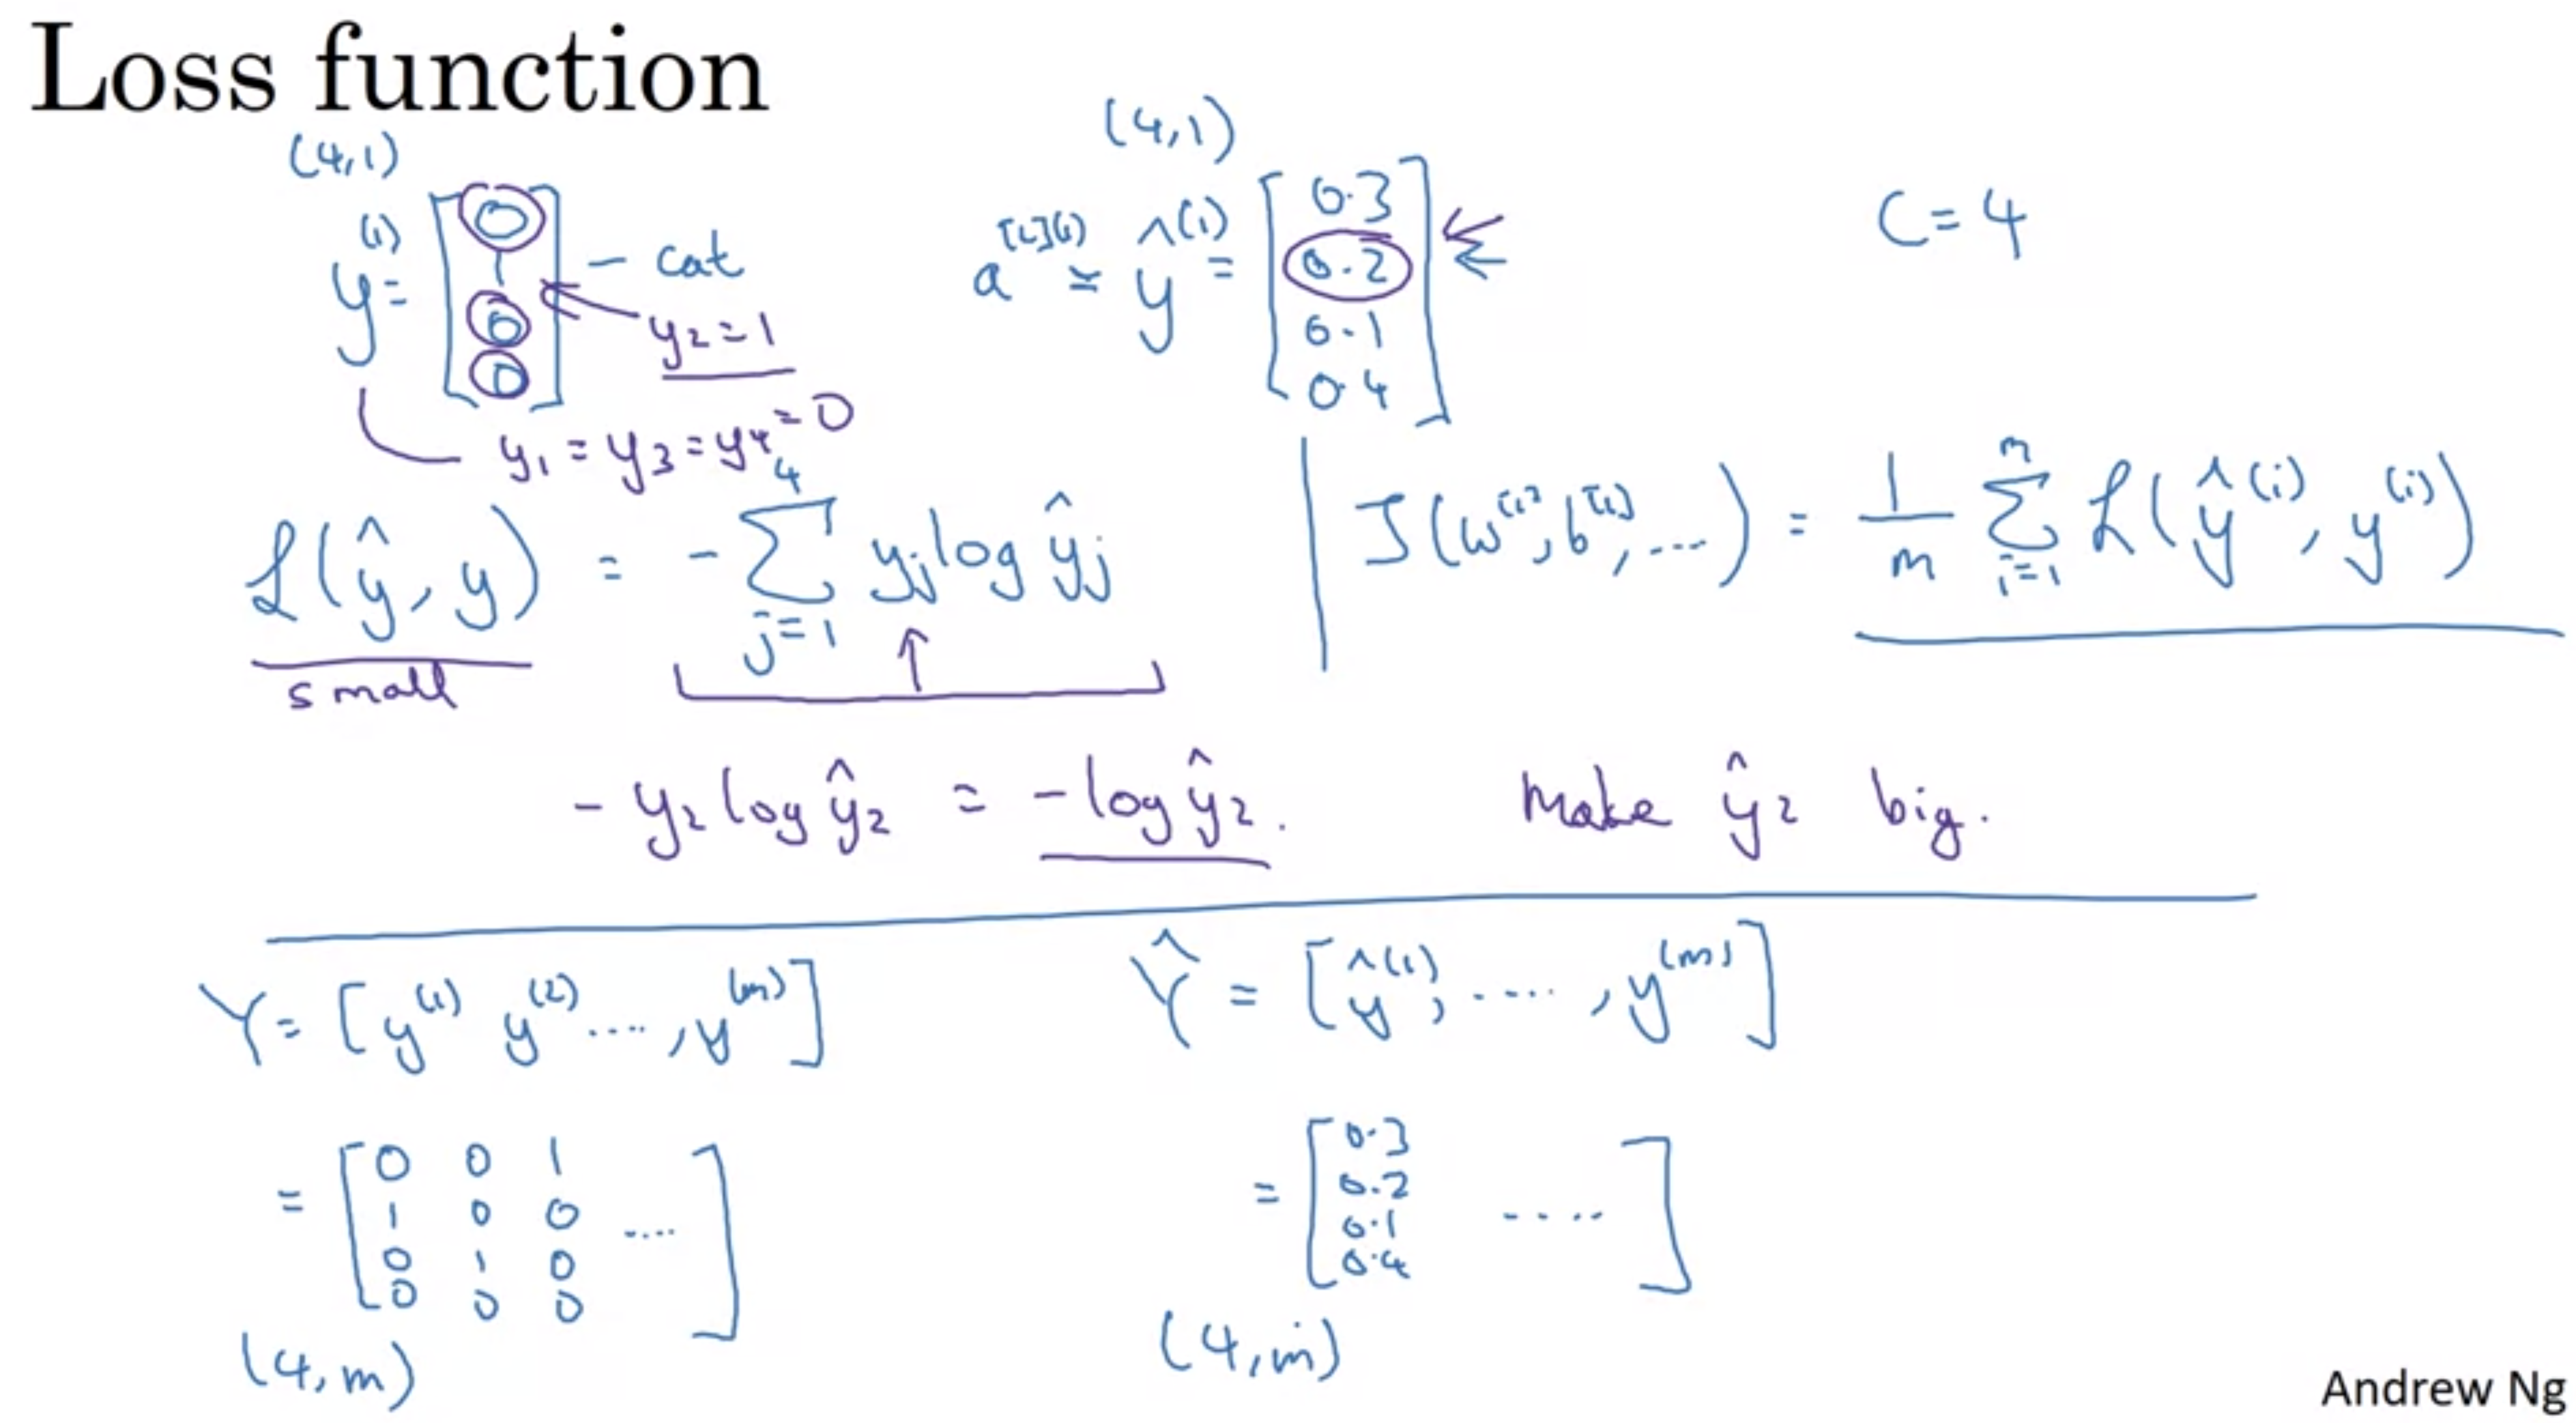 Loss function
(4,1)
y⁽¹⁾ = [0 1 0 0] - cat
y₂ = 1
y₁ = y₃ = y₄ = 0
(4,1)
a^[L](1) = ŷ⁽¹⁾ = [0.3 0.2 0.1 0.4]
C = 4
ℒ(ŷ, y) = - ∑_{j=1}^{4} yⱼ log ŷⱼ
small
J(w^[1], b^[1], ....) = 1/m ∑_{i=1}^{m} ℒ(ŷ⁽ⁱ⁾, y⁽ⁱ⁾)
- y₂ log ŷ₂ = - log ŷ₂.
Make ŷ₂ big.
Y = [y⁽¹⁾ y⁽²⁾ ...., y⁽ᵐ⁾]
= [0 0 1
1 0 0 ....
0 1 0
0 0 0]
(4,m)
Ŷ = [ŷ⁽¹⁾, ....., y⁽ᵐ⁾]
= [0.3
0.2 ....
0.1
0.4]
(4,m)
Andrew Ng